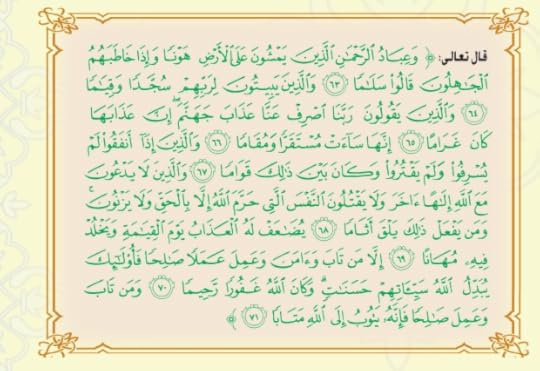 قال تعالى: ﴿ وَعِبَادُ الرَّحْمَٰنِ الَّذِينَ يَمْشُونَ عَلَى الْأَرْضِ هَوْنًا وَإِذَا خَاطَبَهُمُ
الْجَاهِلُونَ قَالُوا سَلَامًا ﴿٦٣﴾ وَالَّذِينَ يَبِيتُونَ لِرَبِّهِمْ سُجَّدًا وَقِيَامًا
﴿٦٤﴾ وَالَّذِينَ يَقُولُونَ رَبَّنَا اصْرِفْ عَنَّا عَذَابَ جَهَنَّمَ ۖ إِنَّ عَذَابَهَا
كَانَ غَرَامًا ﴿٦٥﴾ إِنَّهَا سَاءَتْ مُسْتَقَرًّا وَمُقَامًا ﴿٦٦﴾ وَالَّذِينَ إِذَا أَنفَقُوا لَمْ
يُسْرِفُوا وَلَمْ يَقْتُرُوا وَكَانَ بَيْنَ ذَٰلِكَ قَوَامًا ﴿٦٧﴾ وَالَّذِينَ لَا يَدْعُونَ
مَعَ اللَّهِ إِلَٰهًا ءَاخَرَ وَلَا يَقْتُلُونَ النَّفْسَ الَّتِي حَرَّمَ اللَّهُ إِلَّا بِالْحَقِّ وَلَا يَزْنُونَ ۚ
وَمَن يَفْعَلْ ذَٰلِكَ يَلْقَ أَثَامًا ﴿٦٨﴾ يُضَاعَفْ لَهُ الْعَذَابُ يَوْمَ الْقِيَامَةِ وَيَخْلُدْ
فِيهِ مُهَانًا ﴿٦٩﴾ إِلَّا مَن تَابَ وَءَامَنَ وَعَمِلَ عَمَلًا صَالِحًا فَأُولَٰئِكَ
يُبَدِّلُ اللَّهُ سَيِّئَاتِهِمْ حَسَنَاتٍ ۗ وَكَانَ اللَّهُ غَفُورًا رَّحِيمًا ﴿٧٠﴾ وَمَن تَابَ
وَعَمِلَ صَالِحًا فَإِنَّهُ يَتُوبُ إِلَى اللَّهِ مَتَابًا ﴿٧١﴾ ﴾